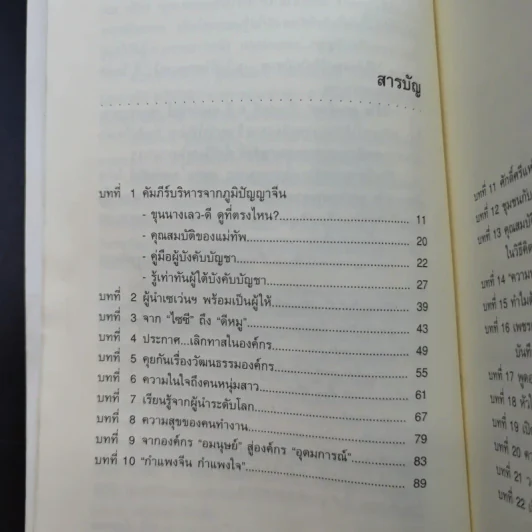 สารบัญ
บทที่ 1 คัมภีร์บริหารจากภูมิปัญญาจีน
- ขุนนางเลว-ดี ดูที่ตรงไหน?........................ 11
- คุณสมบัติของแม่ทัพ........................ 20
- คู่มือผู้บังคับบัญชา........................ 22
- รู้เท่าทันผู้ใต้บังคับบัญชา........................ 27
บทที่ 2 ผู้นำเซเว่นฯ พร้อมเป็นผู้ให้........................ 39
บทที่ 3 จาก "ไซซี" ถึง "ตีหมู"........................ 43
บทที่ 4 ประกาศ...เลิกทาสในองค์กร........................ 49
บทที่ 5 คุยกันเรื่องวัฒนธรรมองค์กร........................ 55
บทที่ 6 ความในใจถึงคนหนุ่มสาว........................ 61
บทที่ 7 เรียนรู้จากผู้นำระดับโลก........................ 67
บทที่ 8 ความสุขของคนทำงาน........................ 79
บทที่ 9 จากองค์กร "อมนุษย์" สู่องค์กร "อุดมการณ์"............ 83
บทที่ 10 "กำแพงจีน กำแพงใจ"........................ 89
บทที่ 11 ศักดิ์ศรีแห่
บทที่ 12 ชุมชนกับ
บทที่ 13 คุณสมบัติ
ในวิธีคิด
บทที่ 14 "ความ
บทที่ 15 ทำไม
บทที่ 16 เพชร
บันทึ
บทที่ 17 พูด
บทที่ 18 หัวใ
บทที่ 19 เปิ
บทที่ 20
บทที่ 21
บทที่ 22